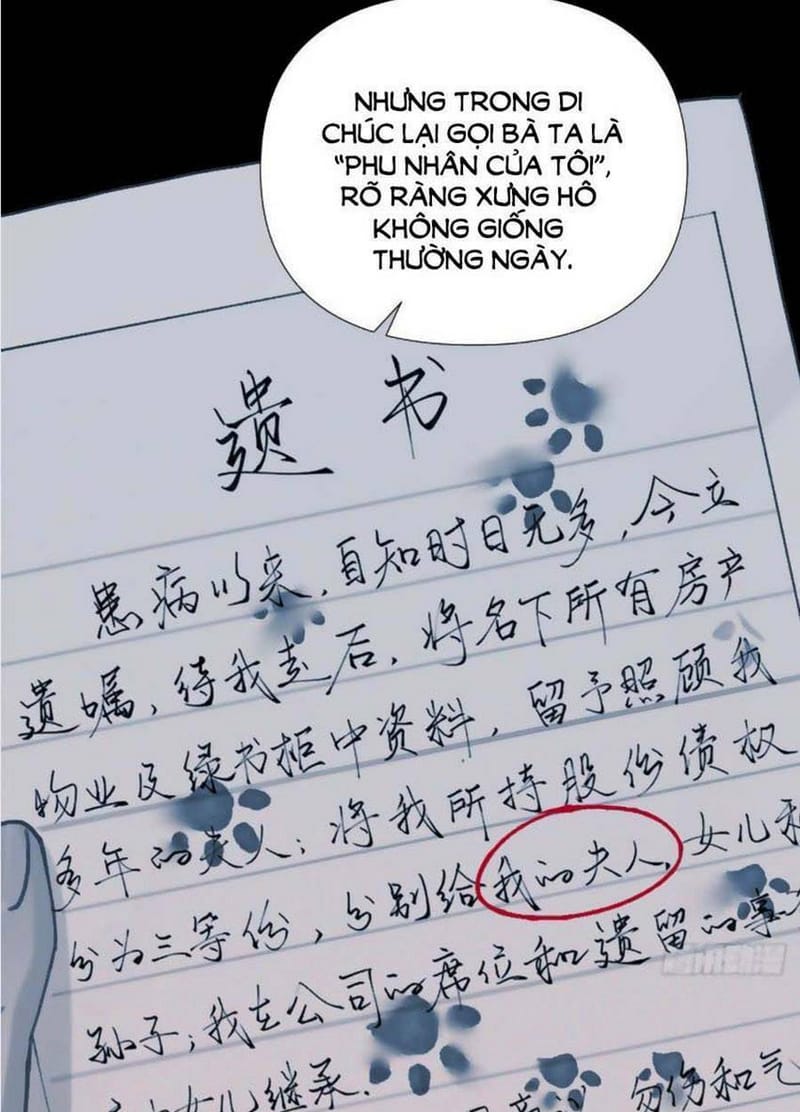 NHƯNG TRONG DI
CHÚC LẠI GỌI BÀ TA LÀ
“PHU NHÂN CỦA TÔI”,
RÕ RÀNG XƯNG HÔ
KHÔNG GIỐNG
THƯỜNG NGÀY.
遗书
患病以来，自知时日无多，今立
遗嘱，待我去后，将名下所有房产
物业及绿书柜中资料，留予照顾我
多年的夫人；将我所持股份债权
分为三等份，分别给我的夫人，女儿和
孙子；我在公司的席位和遗留的事
女儿继承.
勿伤和气